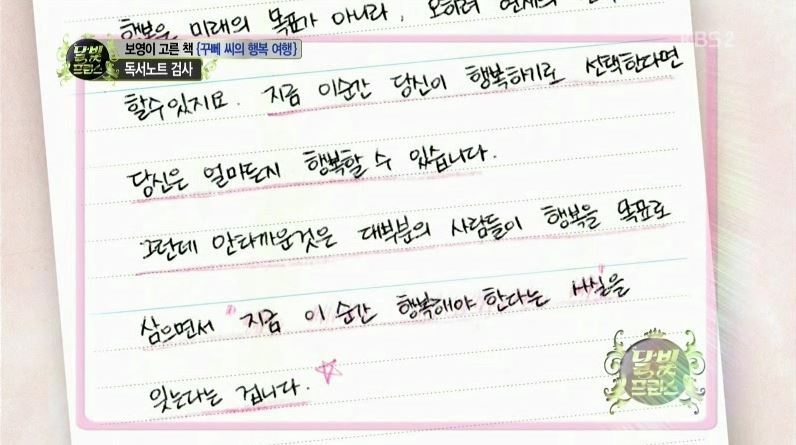 행복을 미래의 목표가 아니라, 오히려 현재의
KBS2
달빛
프린스
보영이 고른 책 {꾸뻬 씨의 행복 여행}
독서노트 검사
할수있지요. 지금 이순간 당신이 행복하기로 선택한다면
당신은 얼마든지 행복할 수 있습니다.
그런데 안타까운것은 대부분의 사람들이 행복을 목표로
삼으면서 "지금 이 순간 행복해야 한다는 사실"을
잊는다는 겁니다. ☆
달빛
프린스